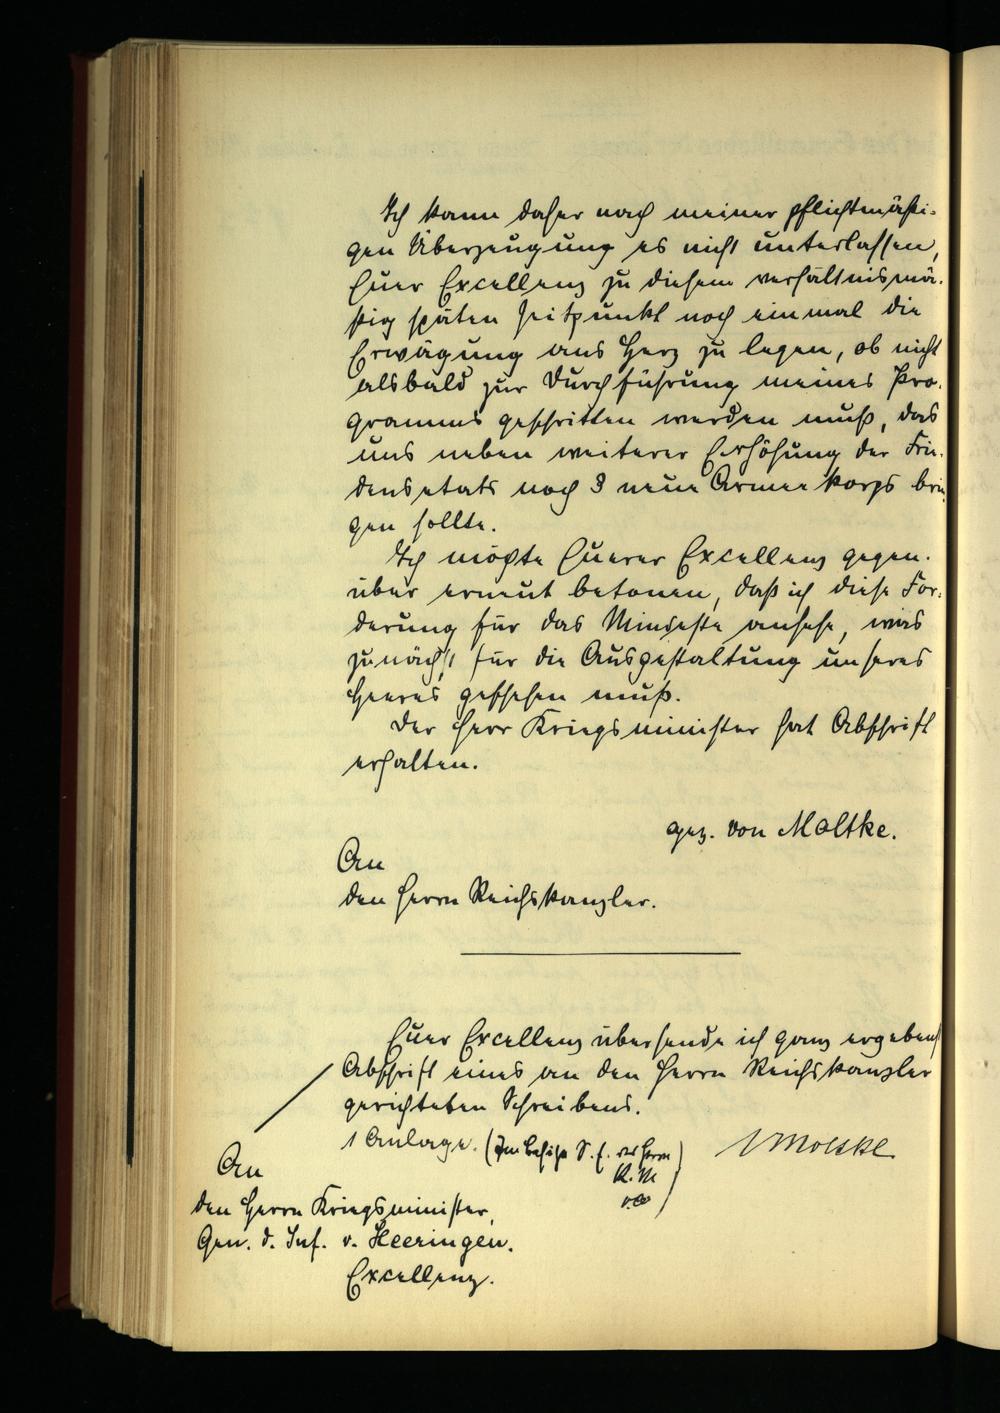 Ich kann daher nach meiner pflichtmäßi-
gen Überzeugung es nicht unterlassen,
Euer Excellenz zu diesem verhältnismä-
ßig späten Zeitpunkt noch einmal die
Erwägung ans Herz zu legen, ob nicht
alsbald zur Durchführung meines Pro-
gramms geschritten werden muß, das
uns neben weiterer Erhöhung der Frie-
densetats noch 3 neue Armeekorps brin-
gen sollte.
Ich möchte Euerer Excellenz gegen-
über erneut betonen, daß ich diese For-
derung für das Mindeste ansehe, was
zunächst für die Ausgestaltung unseres
Heeres geschehen muß.
Der Herr Kriegsminister hat Abschrift
erhalten.
gez. von Moltke.
An
den Herrn Reichskanzler.
Euer Excellenz übersende ich ganz ergebenst
Abschrift eines an den Herrn Reichskanzler
gerichteten Schreibens.
1 Anlage. (Im Besitze S. E. des Herrn
K. M.
v. Moltke
An
den Herrn Kriegsminister,
Gen. d. Inf. v. Heeringen.
Excellenz.